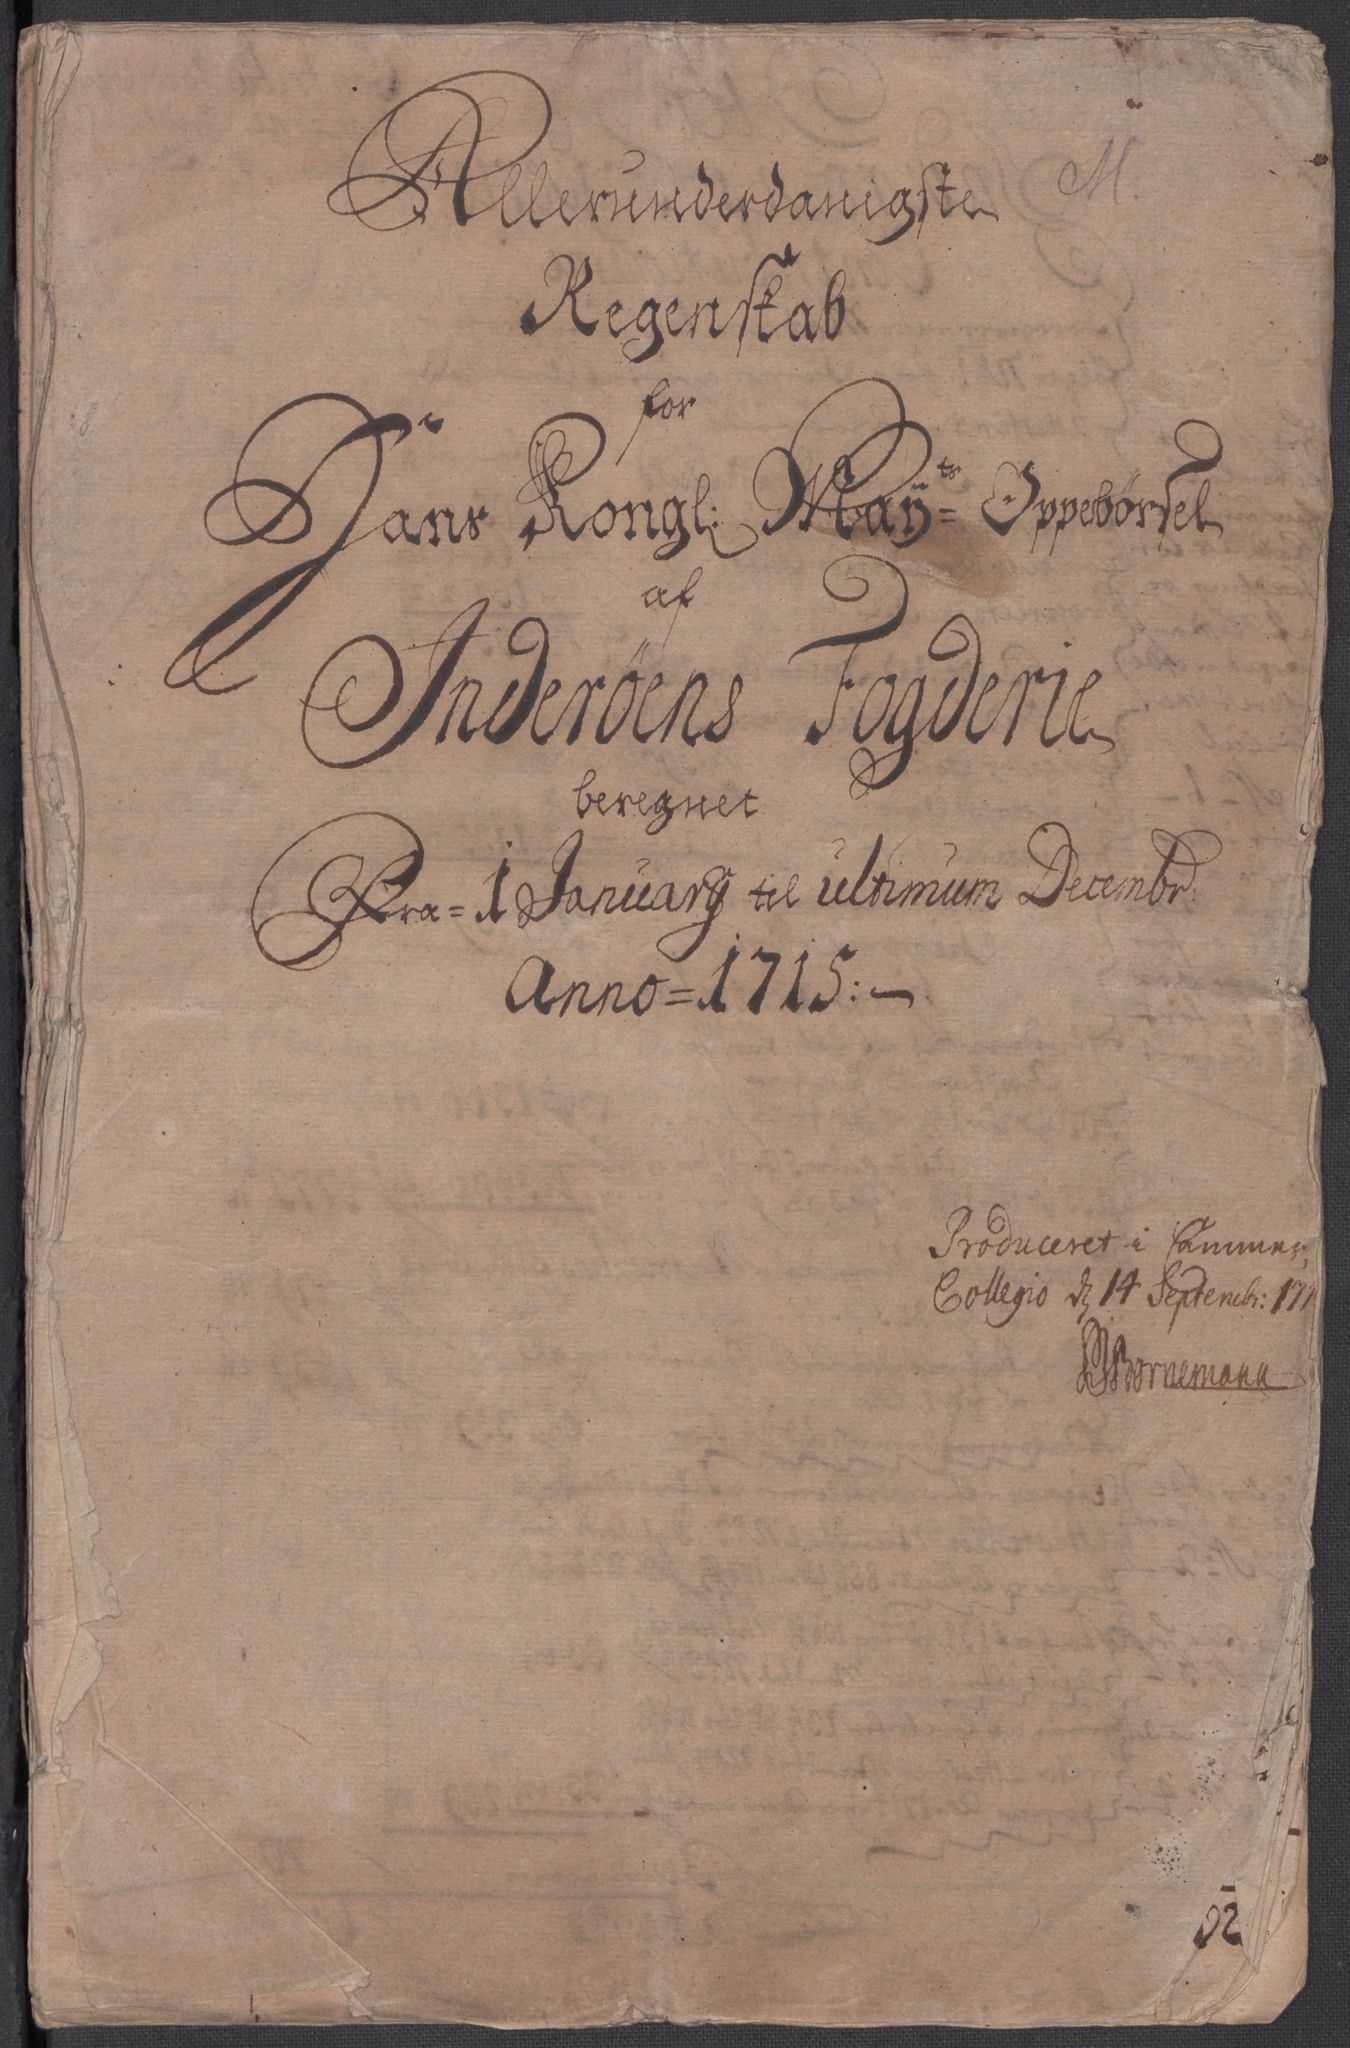 M.
Allerunderdanigste
Regenskab
for
Hans Kongl: May:ts Oppebørsel
af
Inderöens Fogderie
beregnet
Fra = 1 January til ultimum Decembr:
Anno = 1715:
Produceret i Cammer
Collegio d 14 Septembr: 171
Bornemann
52